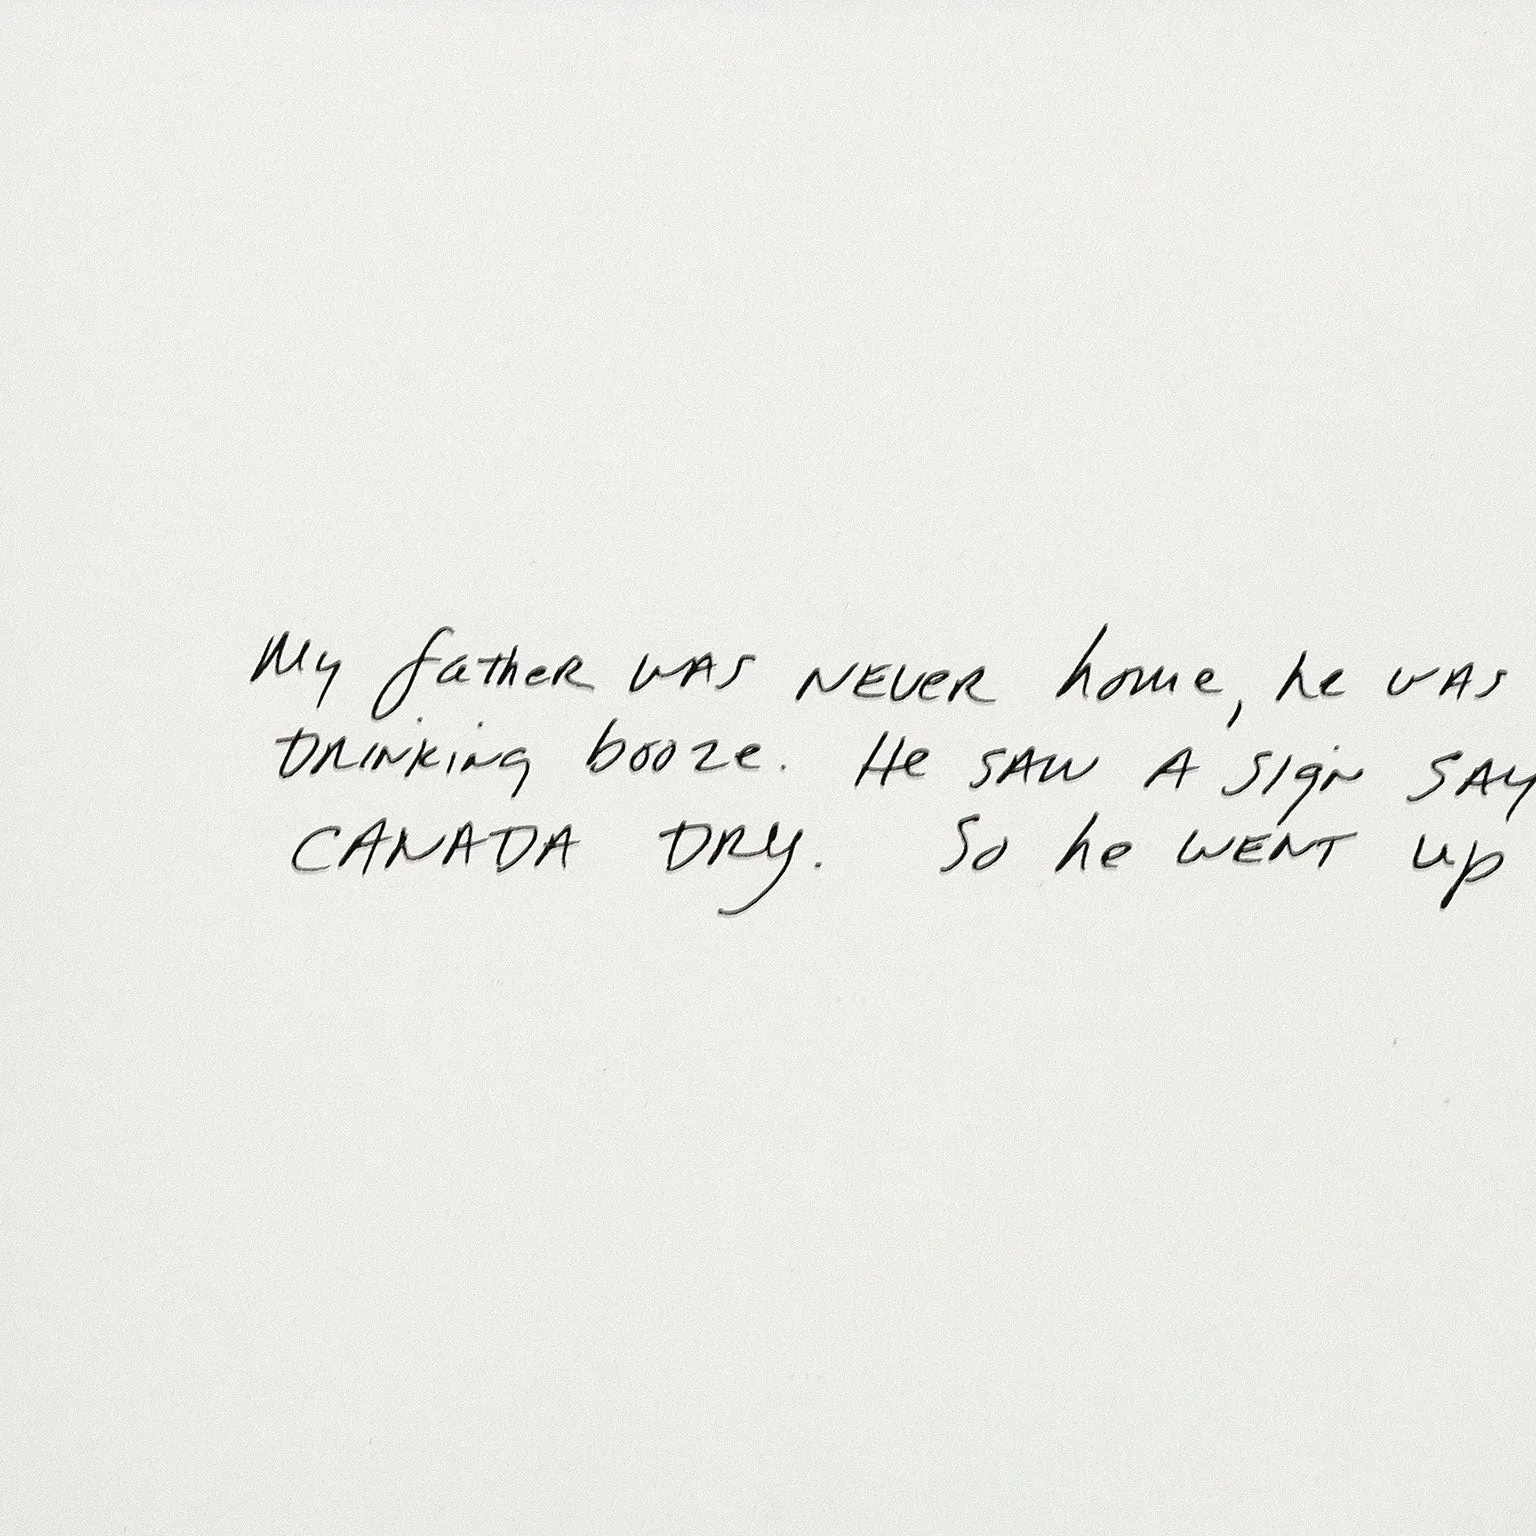 My father was never home, he was
drinking booze. He saw a sign say
CANADA DRY. So he went up